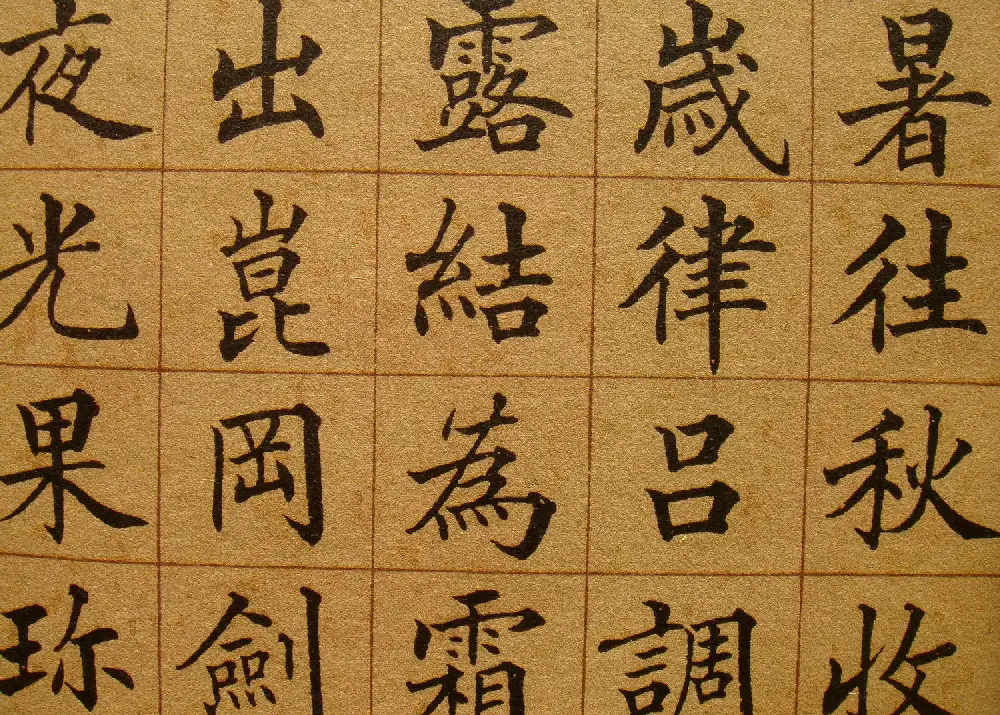 暑往秋收
歲律呂調
露結為霜
出崑岡劍
夜光果珎